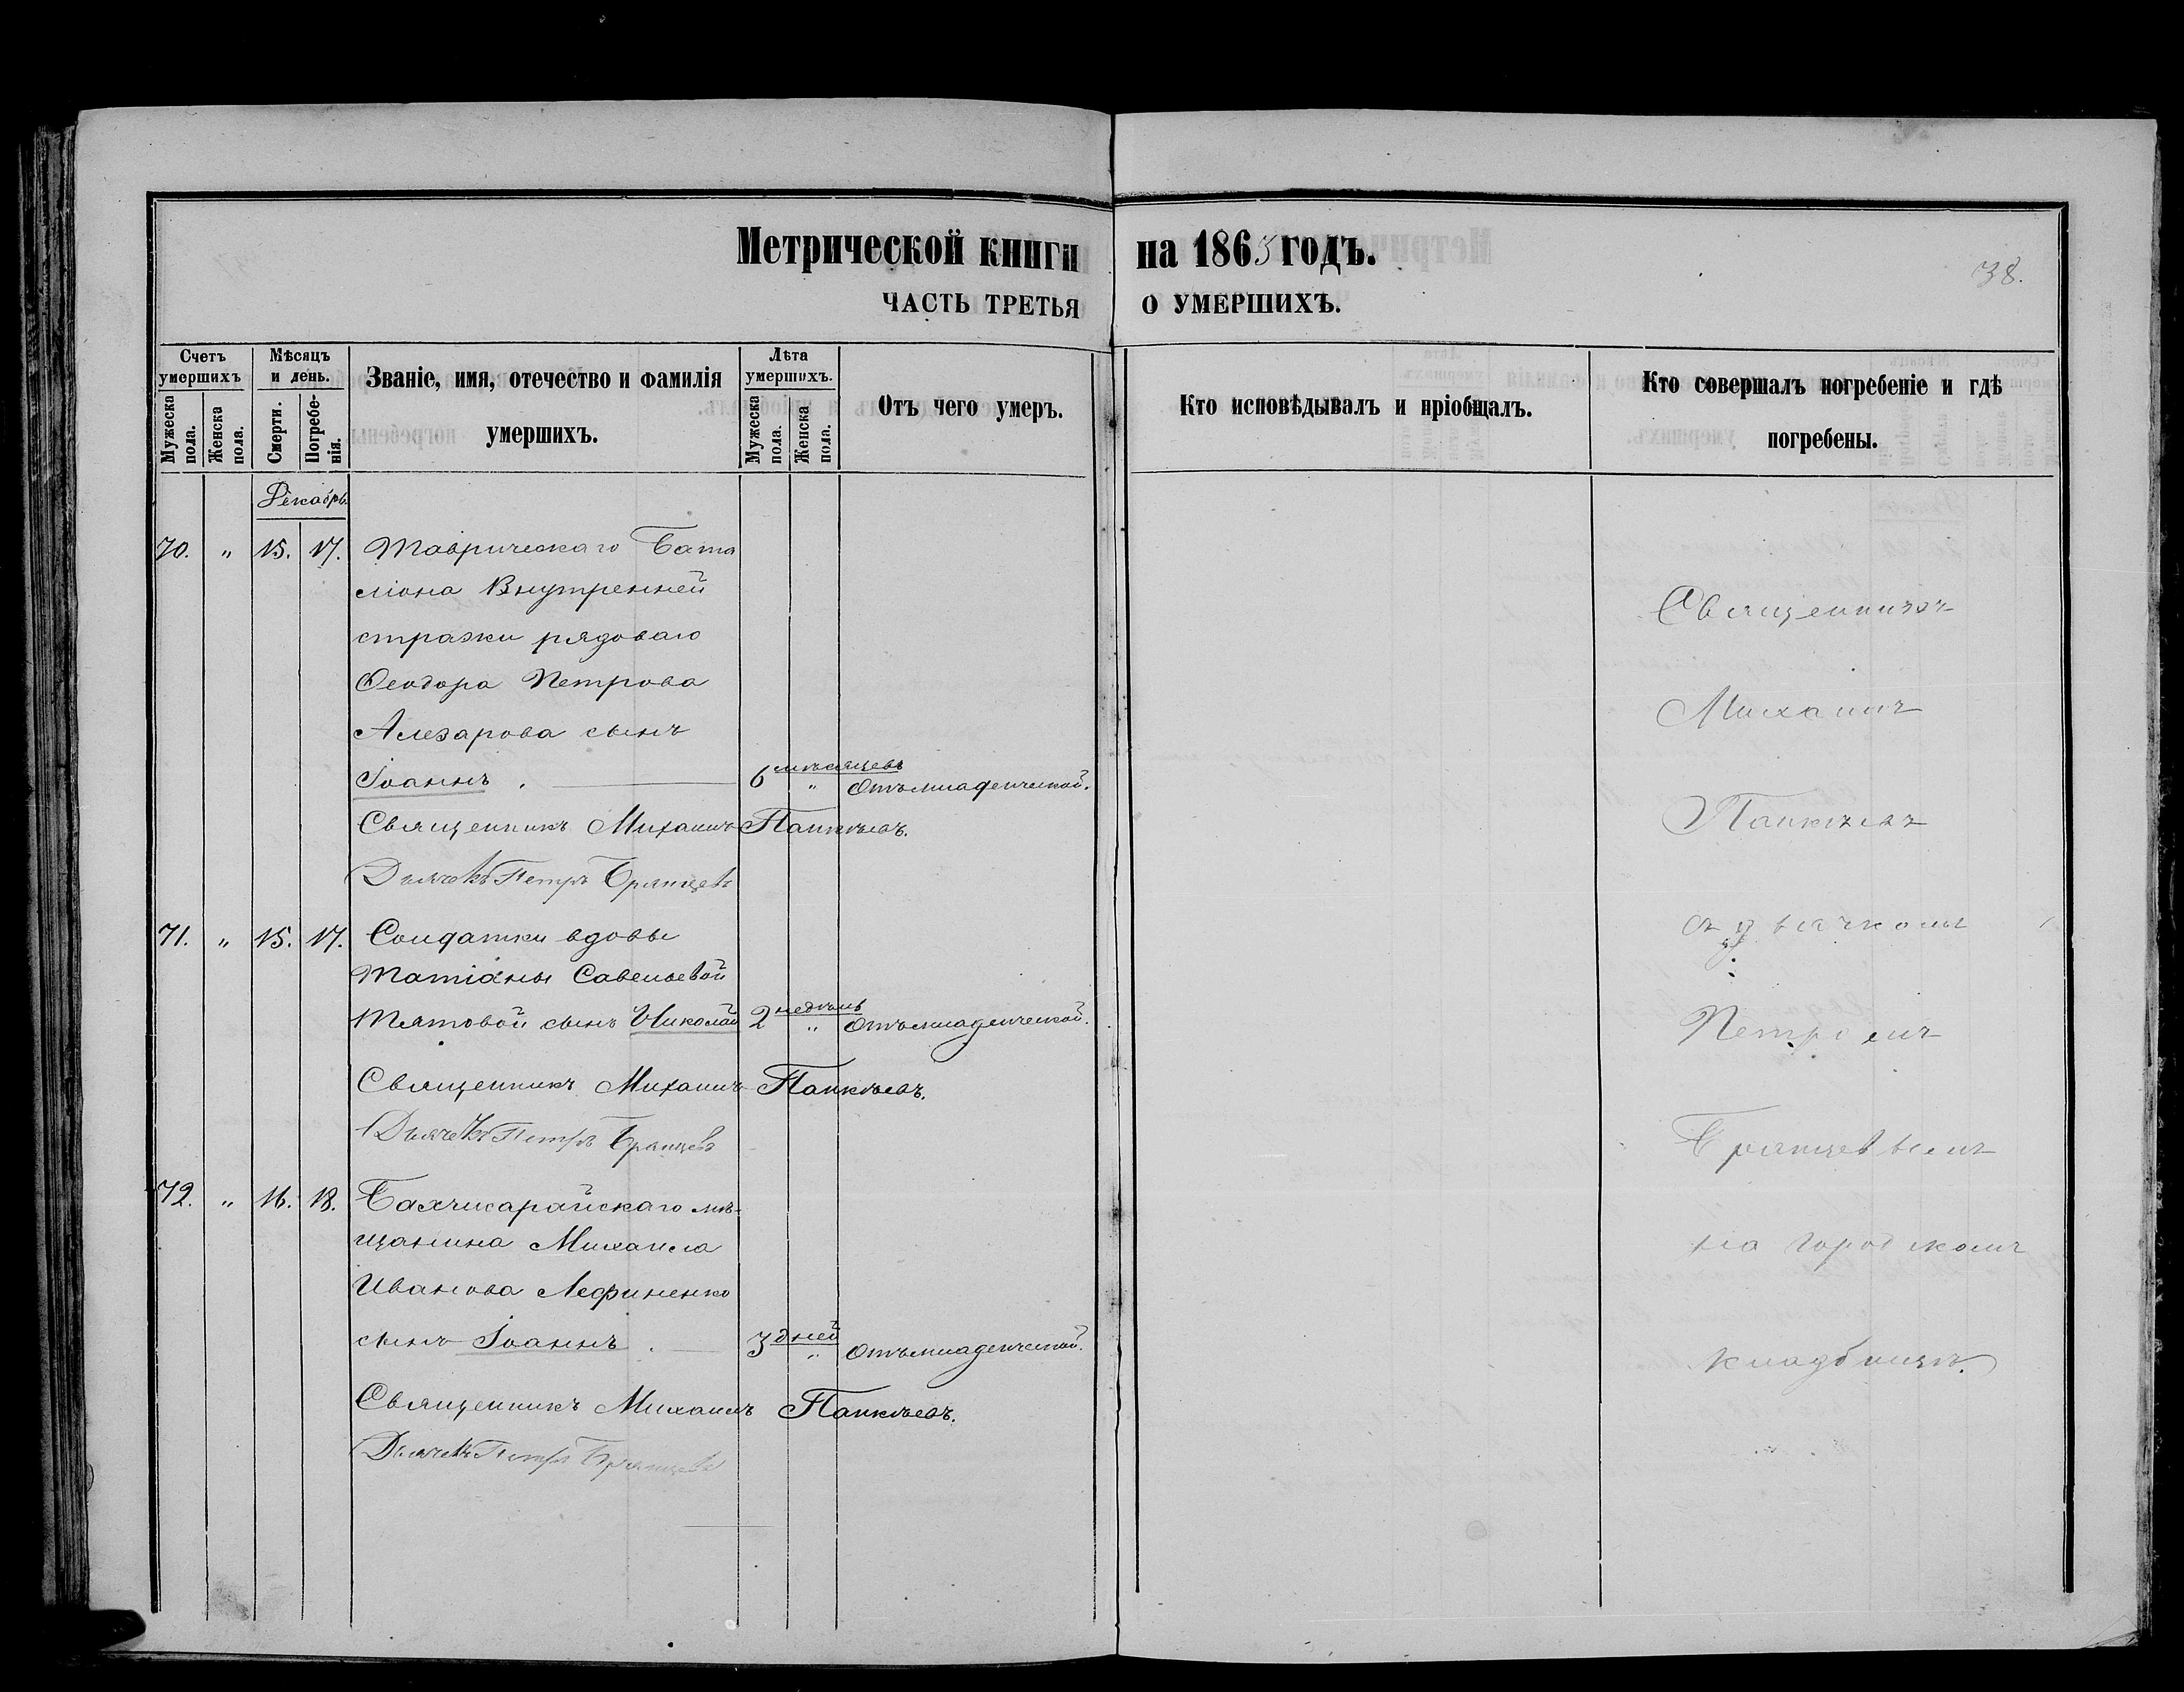 Метрической книги на 1863 годъ.
38.
ЧАСТЬ ТРЕТЬЯ О УМЕРШИХЪ.
Счетъ умершихъ
Мѣсяцъ и день.
Званіе, имя, отечество и фамилія умершихъ.
Лѣта умершихъ.
Отъ чего умеръ.
Кто исповѣдывалъ и пріобщалъ.
Кто совершалъ погребеніе и гдѣ погребены.
Мужеска пола.
Женска пола.
Смерти.
Погребенія.
Мужеска пола.
Женска пола.
Декабрь
70. " 15. 17. Таврическаго Бата
ліона Внутренней
стражи рядоваго
Ѳеодора Петрова
сынъ
Іоаннъ. 6 мѣсяцевъ " Отъ младенческой.
Священникъ Михаилъ Панкѣевъ.
Дьячекъ Петръ Брянцевъ
71. " 15. 17. Солдатки вдовы
Татіаны Савельевой
сынъ Николай 2 недѣль " Отъ младенческой.
Священникъ Михаилъ Панкѣевъ.
Дьячекъ Петръ Брянцевъ
72. " 16. 18. Бахчисарайскаго мѣ-
щанина Михаила
Иванова
сынъ Іоаннъ. 3 дней " Отъ младенческой.
Священникъ Михаилъ Панкѣевъ.
Дьячекъ Петръ Брянцевъ
Священникъ
Михаилъ
Панкѣевъ
съ дьячкомъ
Петромъ
Брянцевымъ
на городскомъ
кладбищѣ.